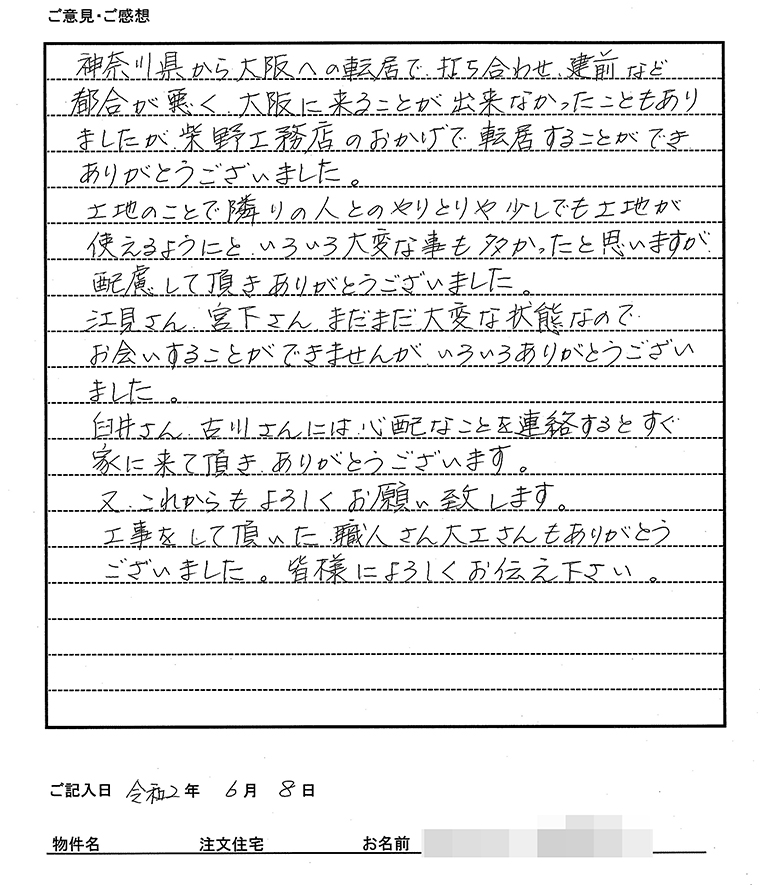 ご意見・ご感想
神奈川県から大阪への転居で、打ち合わせ、建前など
都合が悪く、大阪に来ることが出来なかったこともあり
ましたが、柴野工務店のおかげで転居することができ
ありがとうございました。
土地のことで隣りの人とのやりとりや少しでも土地が
使えるようにと、いろいろ大変な事も多かったと思いますが、
配慮して頂きありがとうございました。
江見さん、宮下さん、まだまだ大変な状態なので
お会いすることができませんが、いろいろありがとうござい
ました。
臼井さん、古川さんには、心配なことを連絡するとすぐ
家に来て頂き、ありがとうございます。
又、これからもよろしくお願い致します。
工事をして頂いた、職人さん大工さんもありがとう
ございました。皆様によろしくお伝え下さい。
ご記入日 令和2年 6月 8日
物件名 注文住宅 お名前